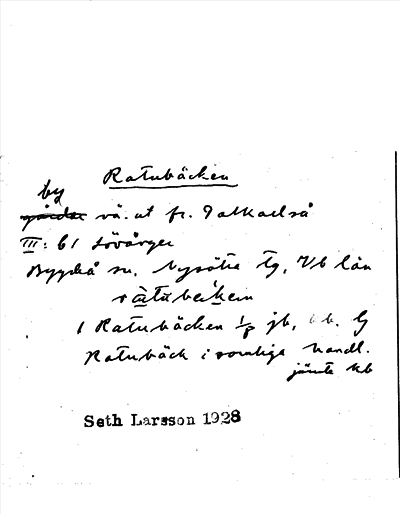 Ratubäcken
by
gårdar vä. ut fr. Falkaelså
III: 61 Lövånger
Bygdeå sn. Nysätra tg, Vb län
ràtubeʹkein
1 Ratubäcken 1/8 jb, b. Lj
Ratubäck i somliga handl.
jämte kb
Seth Larsson 1928